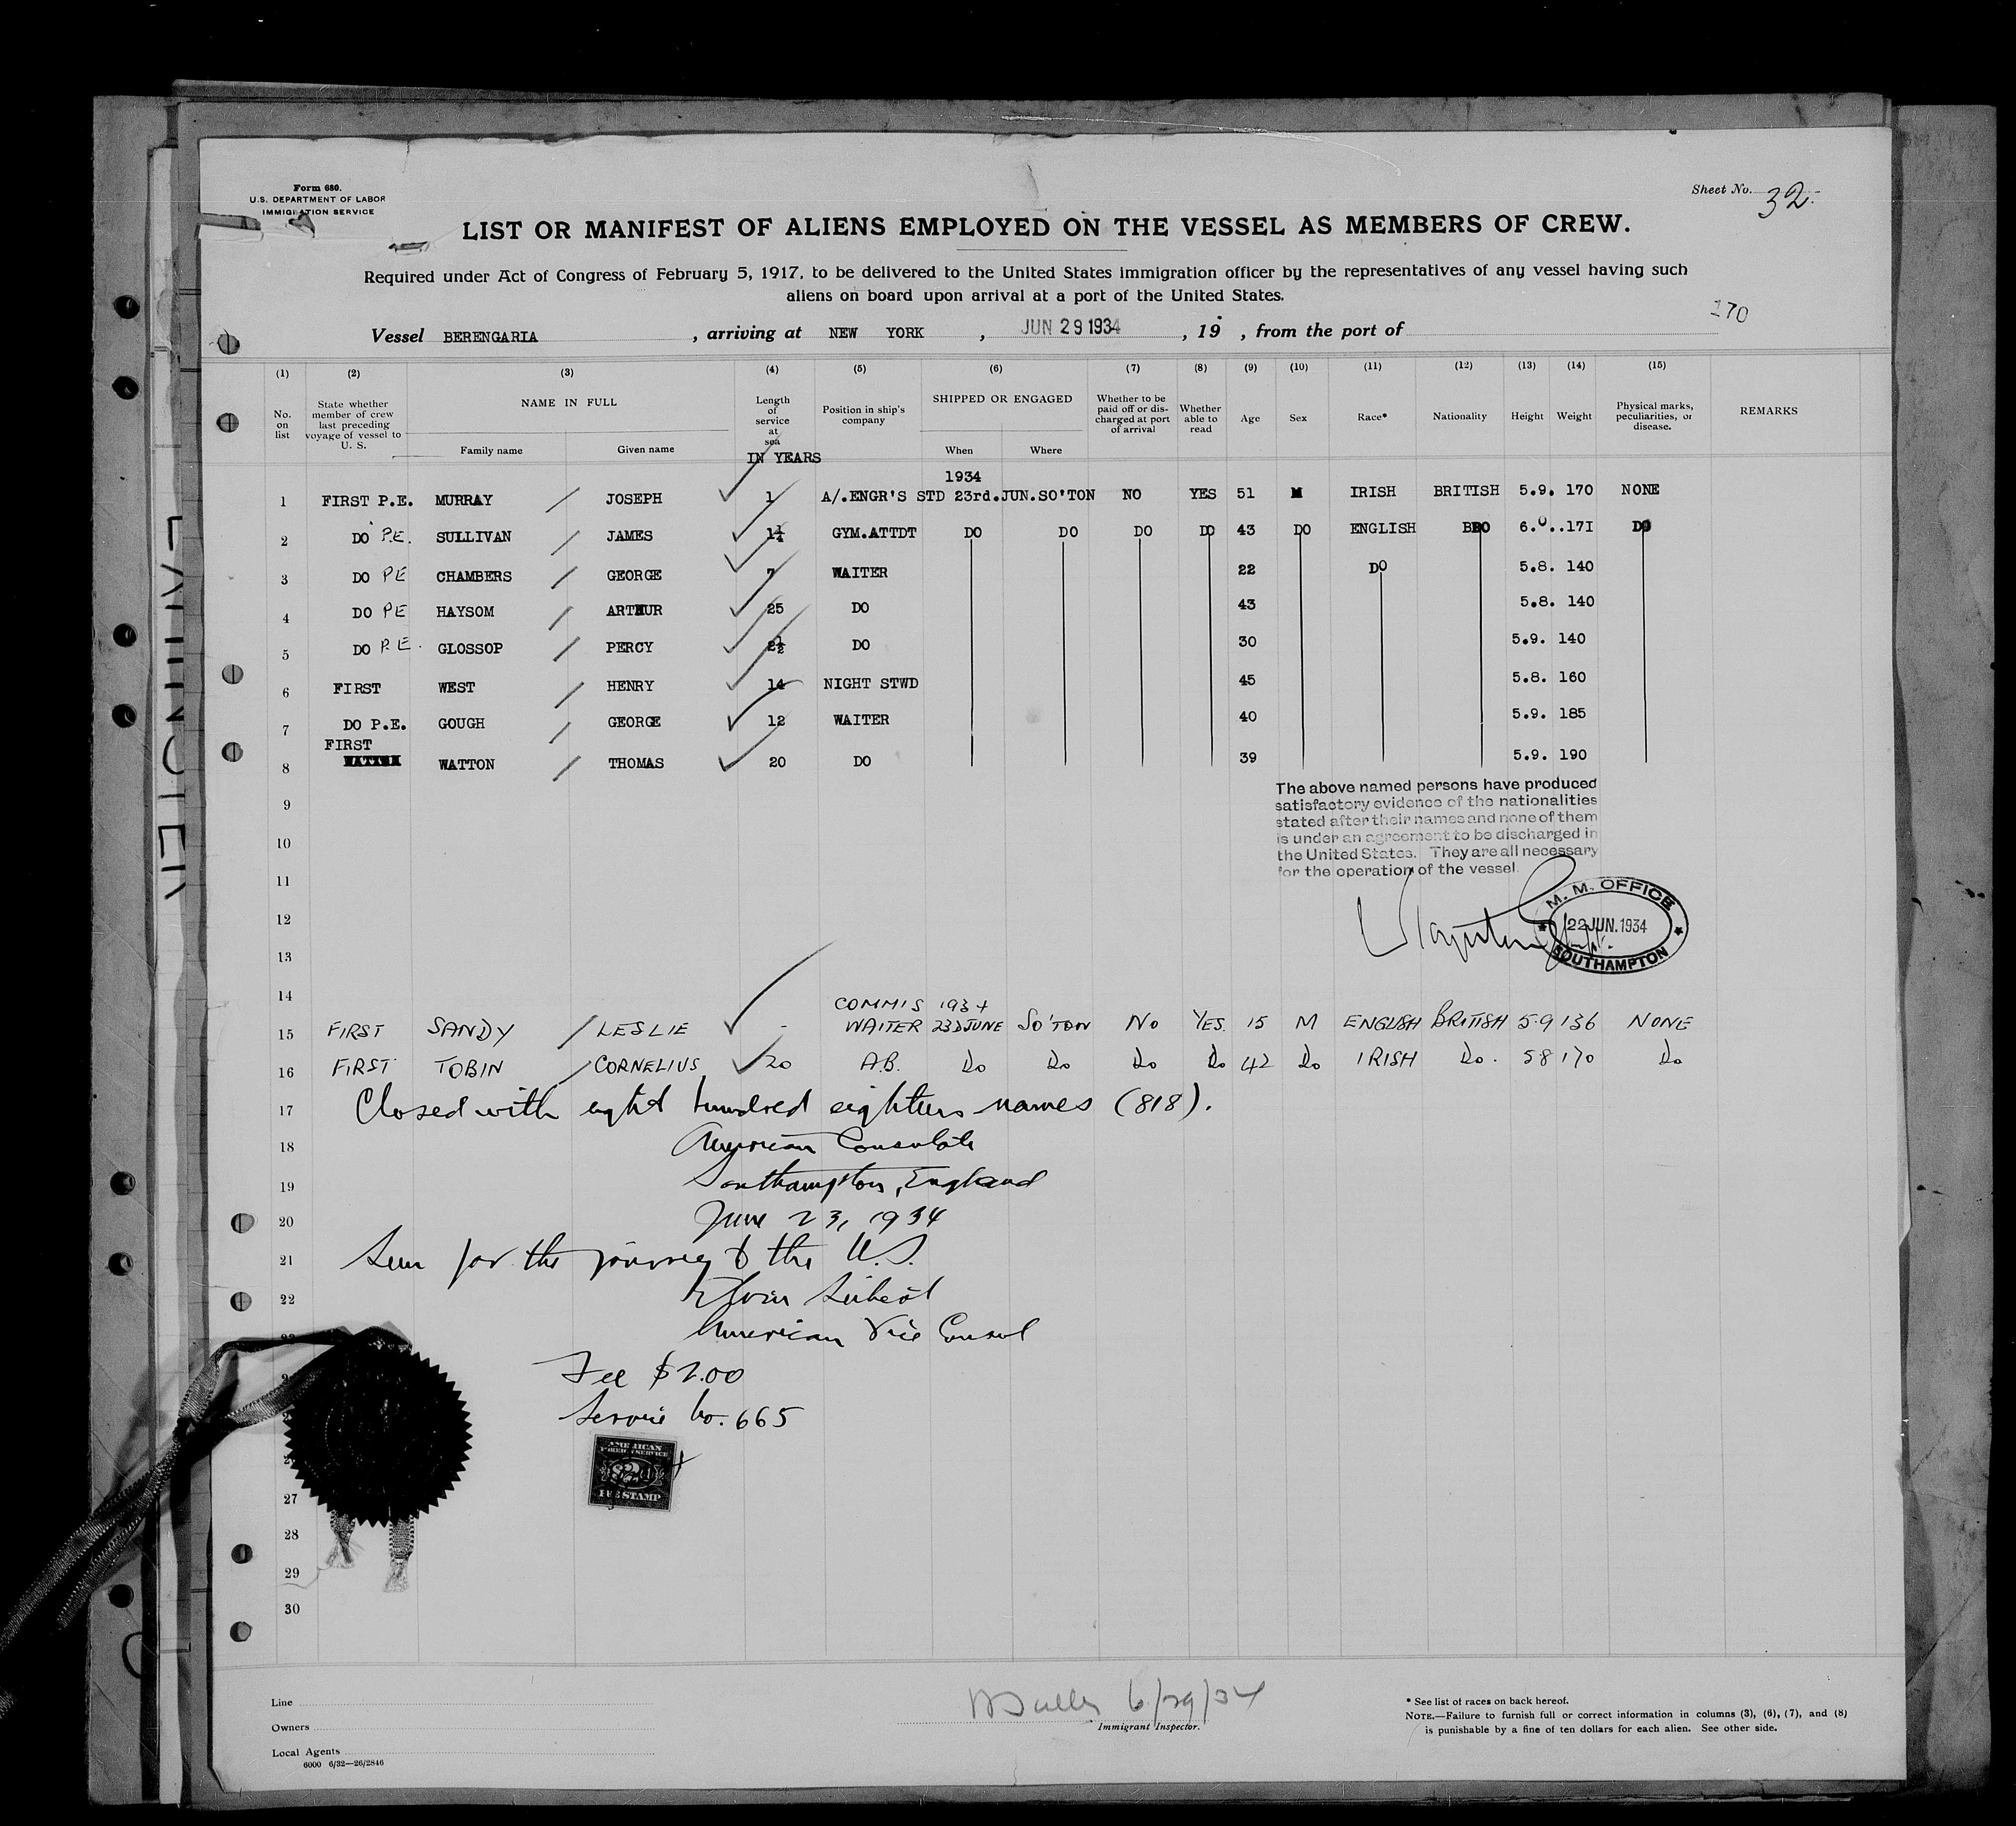 Form 680.
U.S. DEPARTMENT OF LABOR
IMMIGRATION SERVICE
Sheet No. 32.
LIST OR MANIFEST OF ALIENS EMPLOYED ON THE VESSEL AS MEMBERS OF CREW.
Required under Act of Congress of February 5, 1917, to be delivered to the United States immigration officer by the representatives of any vessel having such
aliens on board upon arrival at a port of the United States.
170
Vessel BERENGARIA , arriving at NEW YORK , JUN 29 1934 , 19 , from the port of
(1) (2) (3) (4) (5) (6) (7) (8) (9) (10) (11) (12) (13) (14) (15)
No. on list
State whether member of crew last preceding voyage of vessel to U. S.
NAME IN FULL
Family name
Given name
Length of service at sea
IN YEARS
Position in ship's company
SHIPPED OR ENGAGED
When
Where
Whether to be paid off or discharged at port of arrival
Whether able to read
Age
Sex
Race*
Nationality
Height
Weight
Physical marks, peculiarities, or disease.
REMARKS
1934
1 FIRST P.E. MURRAY / JOSEPH 1 A/.ENGR'S STD 23rd.JUN.SO'TON NO YES 51 M IRISH BRITISH 5.9. 170 NONE
2 DO P.E. SULLIVAN / JAMES 1¼ GYM.ATTDT DO DO DO DO 43 DO ENGLISH DO 6.0..171 DO
3 DO PE CHAMBERS / GEORGE 7 WAITER 22 DO 5.8. 140
4 DO PE HAYSOM / ARTHUR 25 DO 43 5.8. 140
5 DO P.E. GLOSSOP / PERCY 2½ DO 30 5.9. 140
6 FIRST WEST / HENRY 14 NIGHT STWD 45 5.8. 160
7 DO P.E. GOUGH / GEORGE 12 WAITER 40 5.9. 185
FIRST
8 WATTON / THOMAS 20 DO 39 5.9. 190
The above named persons have produced
satisfactory evidence of the nationalities
stated after their names and none of them
is under an agreement to be discharged in
the United States. They are all necessary
for the operation of the vessel.
M. M. OFFICE
22 JUN. 1934
SOUTHAMPTON
9
10
11
12
13
14
COMMIS 1934
15 FIRST SANDY / LESLIE - WAITER 23D JUNE SO'TON NO YES. 15 M ENGLISH BRITISH 5.9 136 NONE
16 FIRST TOBIN / CORNELIUS 20 A.B. Do Do Do Do 42 Do IRISH Do. 5 8 170 Do
17 Closed with eight hundred eighteen names (818).
18 American Consulate
19 Southampton, England
20 June 23, 1934
21 Seen for the journey to the U.S.
22 Elvin Seibert
American Vice Consul
Fee $2.00
Service No. 665
AMERICAN
FOREIGN SERVICE
FEE STAMP
27
28
29
30
Line
Owners
Local Agents
6000 6/32—26/2846
6/29/34
Immigrant Inspector.
* See list of races on back hereof.
NOTE.—Failure to furnish full or correct information in columns (3), (6), (7), and (8)
is punishable by a fine of ten dollars for each alien. See other side.